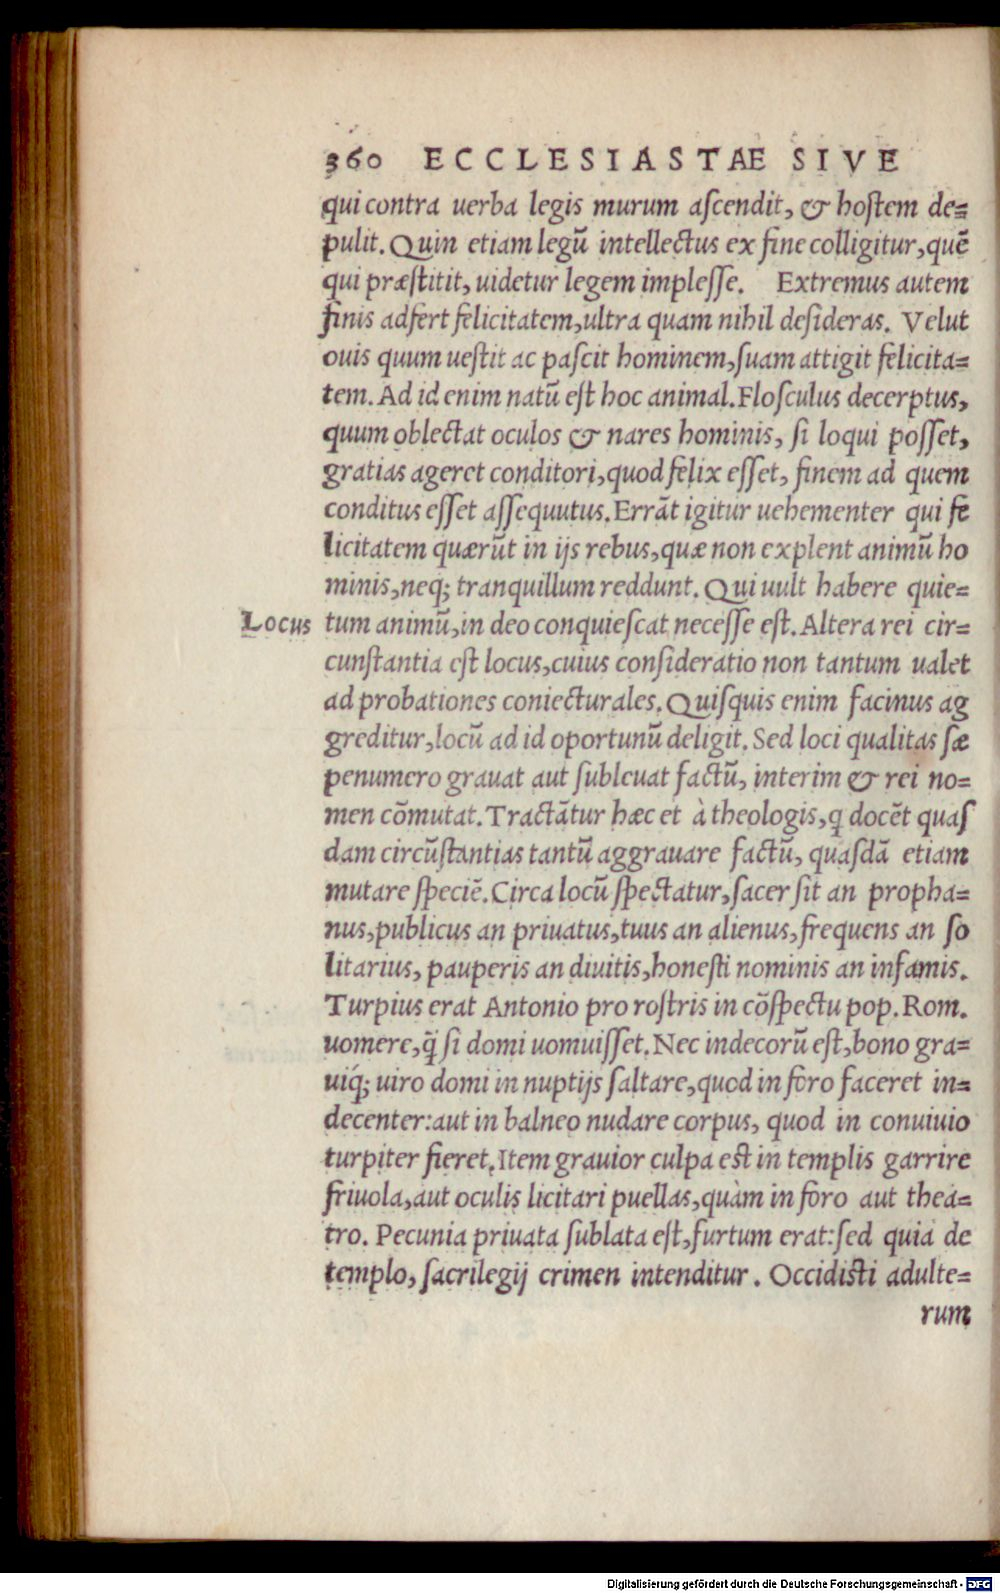 360 ECCLESIASTAE SIVE
qui contra uerba legis murum ascendit, & hostem de=
pulit. Quin etiam legū intellectus ex fine colligitur, quē
qui præstitit, uidetur legem implesse. Extremus autem
finis adfert felicitatem, ultra quam nihil desideras. Velut
ouis quum uestit ac pascit hominem, suam attigit felicita=
tem. Ad id enim natū est hoc animal. Flosculus decerptus,
quum oblectat oculos & nares hominis, si loqui posset,
gratias ageret conditori, quod felix esset, finem ad quem
conditus esset assequutus. Errāt igitur uehementer qui fe
licitatem quærūt in ijs rebus, quæ non explent animū ho
minis, neq; tranquillum reddunt. Qui uult habere quie=
Locus tum animū, in deo conquiescat necesse est. Altera rei cir=
cunstantia est locus, cuius consideratio non tantum ualet
ad probationes coniecturales. Quisquis enim facinus ag
greditur, locū ad id oportunū deligit. Sed loci qualitas sæ
penumero grauat aut subleuat factū, interim & rei no=
men cōmutat. Tractātur hæc et à theologis, q̄ docēt quas
dam circūstantias tantū aggrauare factū, quasdā etiam
mutare speciē. Circa locū spectatur, sacer sit an propha=
nus, publicus an priuatus, tuus an alienus, frequens an so
litarius, pauperis an diuitis, honesti nominis an infamis.
Turpius erat Antonio pro rostris in cōspectu pop. Rom.
uomere, q̄̀ si domi uomuisset. Nec indecorū est, bono gra=
uiq́; uiro domi in nuptijs saltare, quod in foro faceret in=
decenter: aut in balneo nudare corpus, quod in conuiuio
turpiter fieret. Item grauior culpa est in templis garrire
friuola, aut oculis licitari puellas, quàm in foro aut thea=
tro. Pecunia priuata sublata est, furtum erat: sed quia de
templo, sacrilegij crimen intenditur. Occidisti adulte=
rum
Digitalisierung gefördert durch die Deutsche Forschungsgemeinschaft - DFG